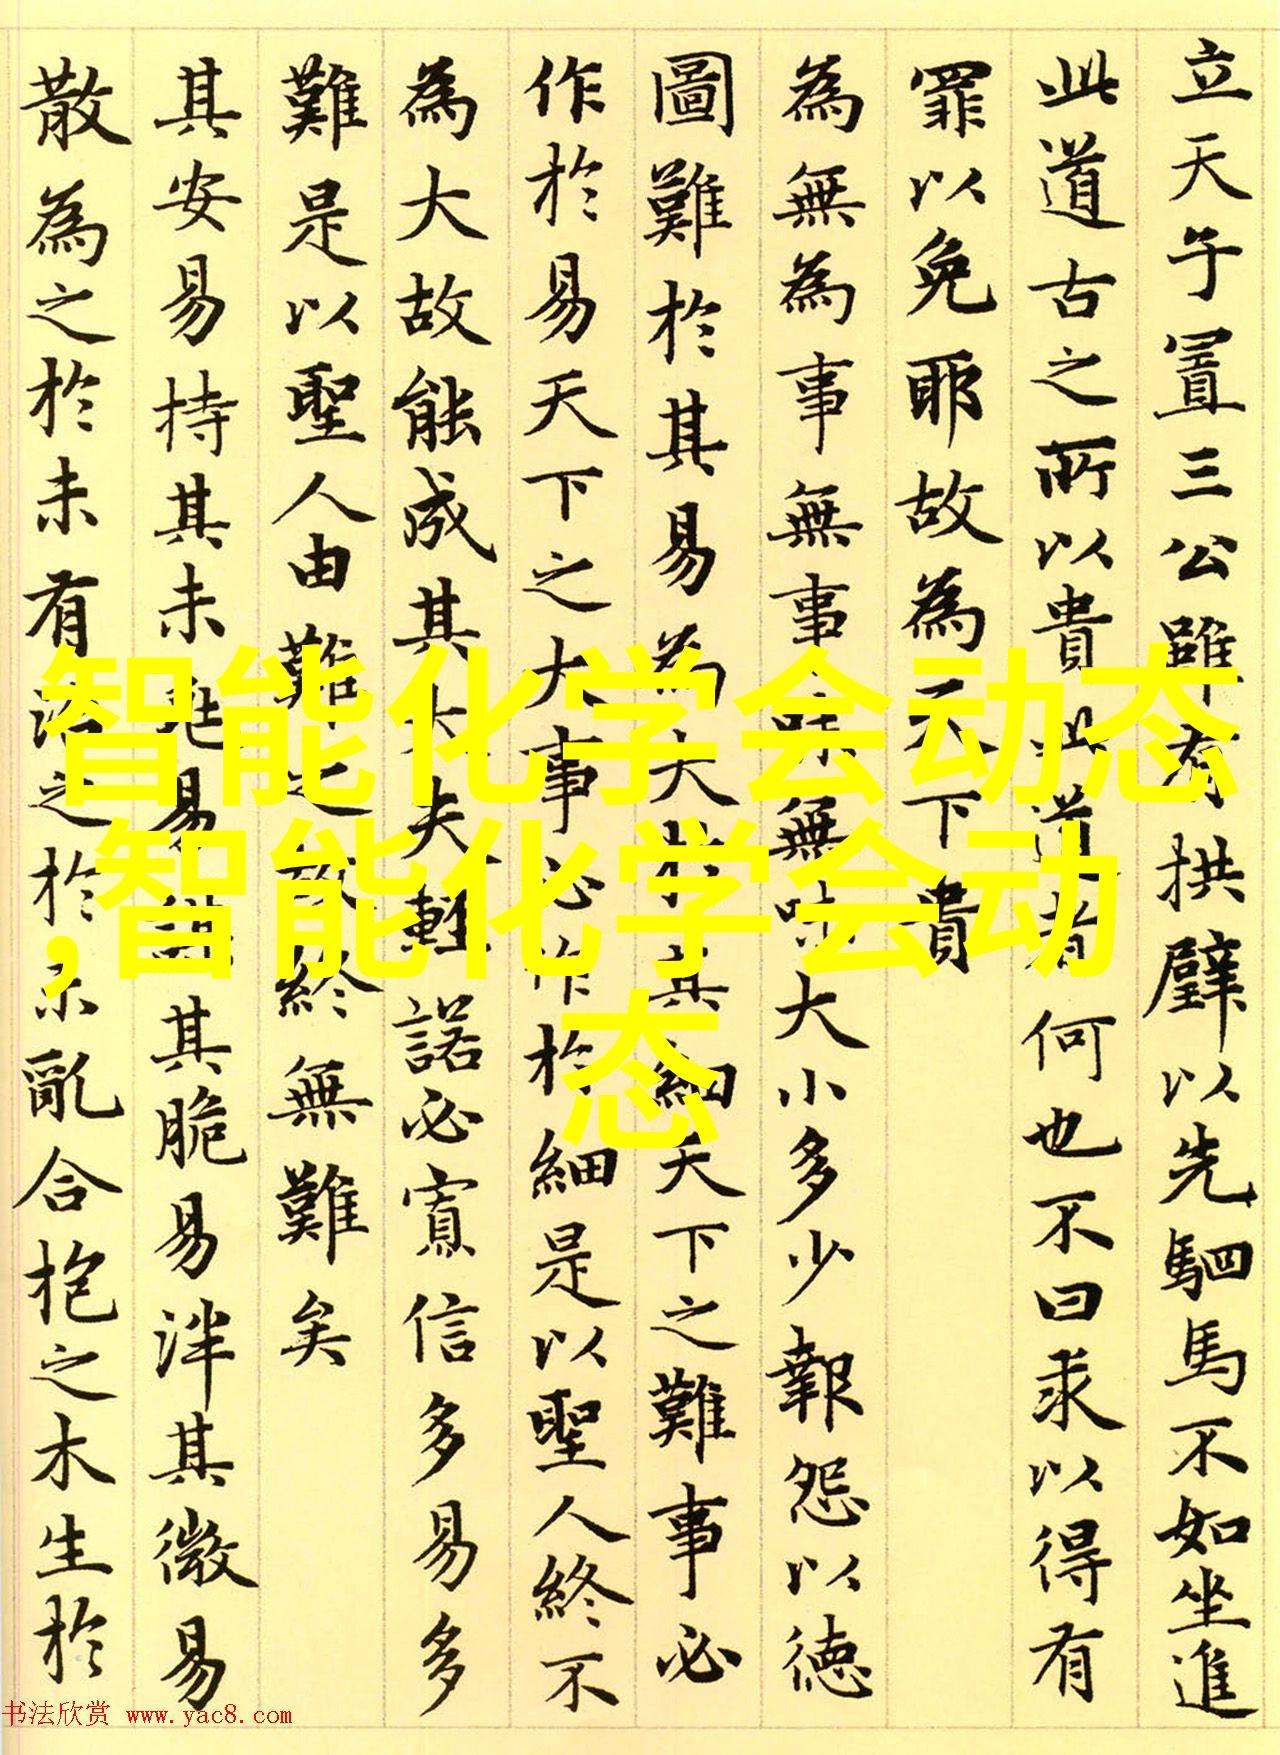 立天子置三公雖有拱璧以先駟馬不如坐進
此道古之所以貴此道者何也不曰求以得有
罪以免耶故為天下貴
為無為事無事味無味大小多少報怨以德
圖難於其易為大於其細天下之難事必
作於易天下之大事必作於細是以聖人終不
為大故能成其大夫輕諾必寡信多易多
難是以聖人由難之故終無難矣
其安易持其未兆易謀其脆易泮其微易
散為之於未有治之於未亂合抱之木生於
智能化学会动态
,智能化学会动
态
书法欣赏 www.yac8.com